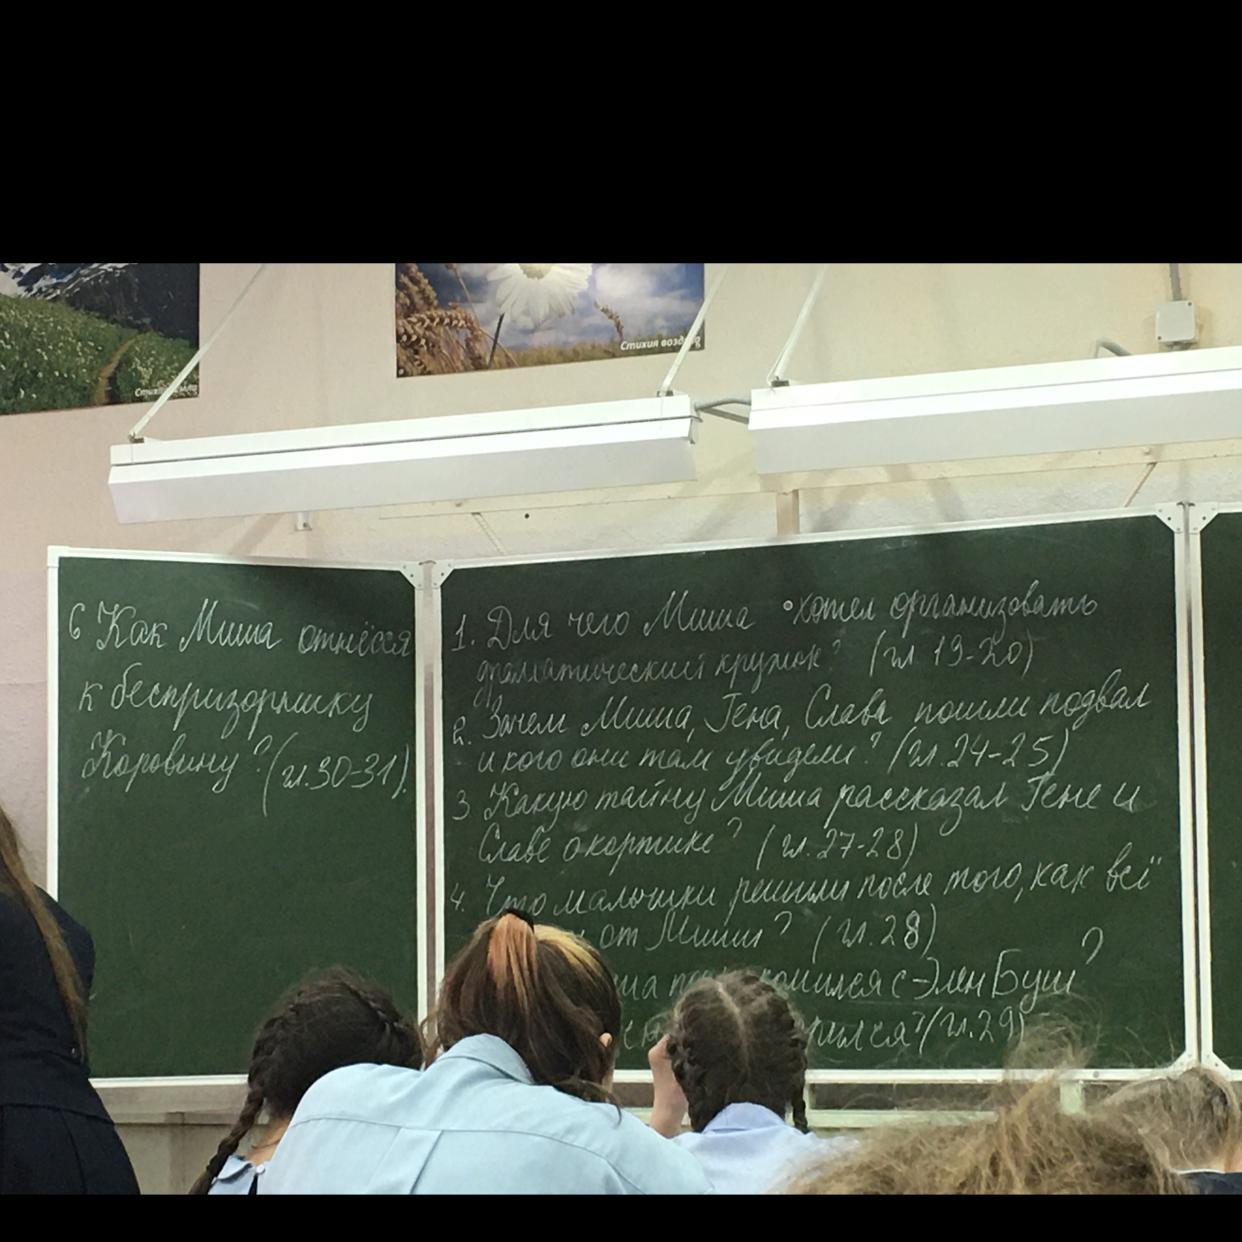 Стихия
Стихия воздуха
6 Как Миша отнёсся
к беспризорнику
Коровину? (гл.30-31).
1. Для чего Миша хотел организовать
драматический кружок? (гл 19-20)
2. Зачем Миша, Гена, Слава пошли подвал
и кого они там увидели? (гл.24-25)
3 Какую тайну Миша рассказал Гене и
Славе о кортике? (гл.27-28)
4. Что мальчики решили после того, как всё
от Миши? (гл.28)
с Элен Буш?
(гл.29)